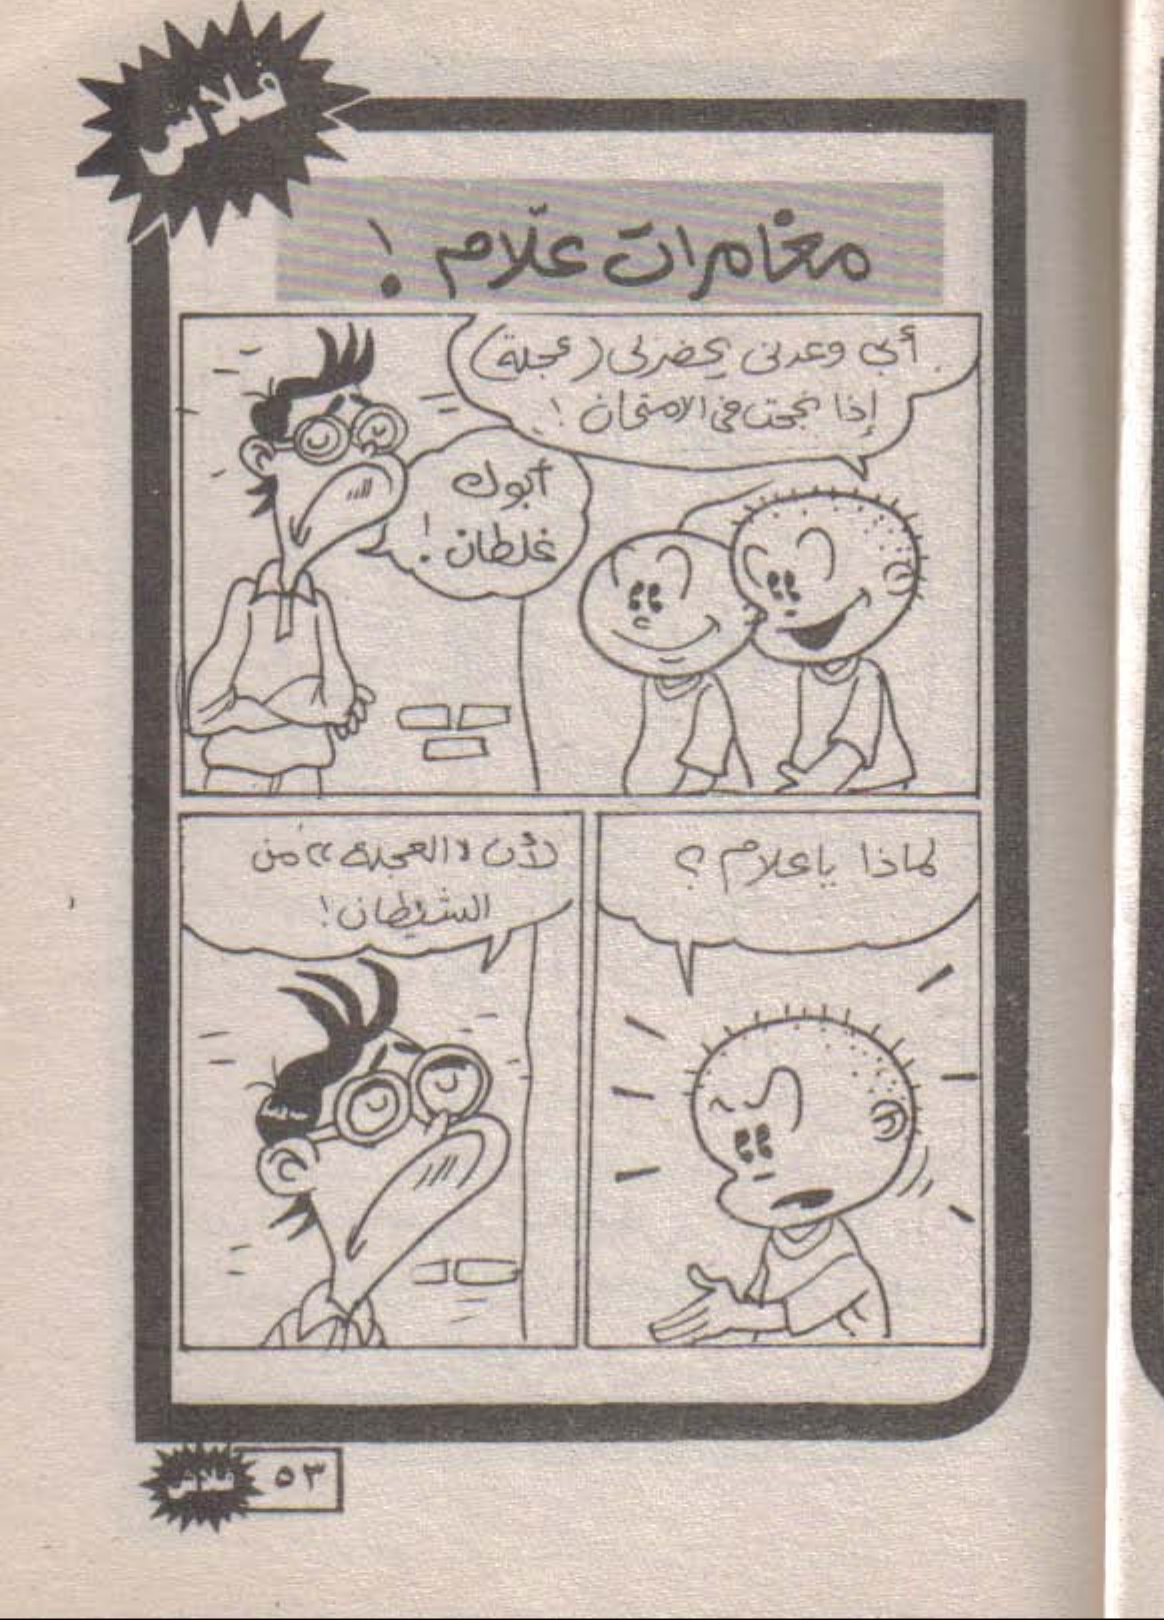 فلاش
مغامرات علّام !
أبى وعدنى يحضرلى (عجلة)
إذا نجحت فى الامتحان !
أبوك
غلطان !
لماذا ياعلام ؟
لأن «العجلة» من
الشيطان !
فلاش ٥٣